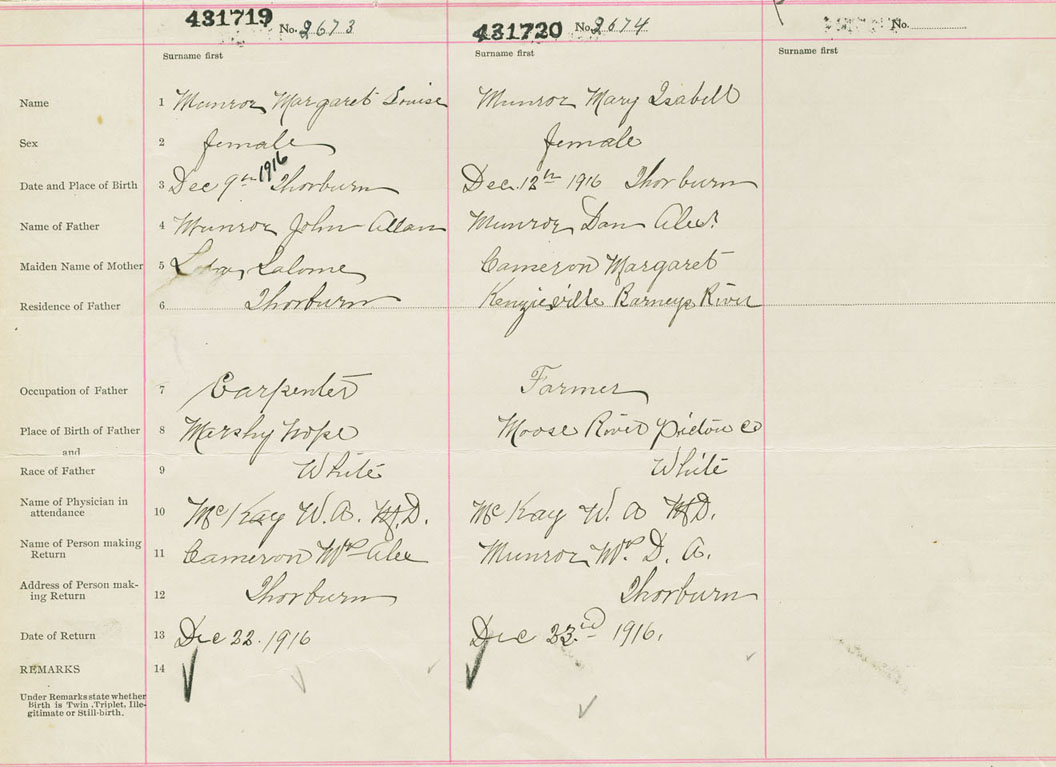 431719 No. 2673 431720 No. 2674 No.
Surname first Surname first Surname first
Name 1 Munroe Margaret Louise Munroe Mary Isabell
Sex 2 female female
Date and Place of Birth 3 Dec 9th 1916 Thorburn Dec. 12th 1916 Thorburn
Name of Father 4 Munroe John Allan Munroe Dan Alex.
Maiden Name of Mother 5 Salome Cameron Margaret
Residence of Father 6 Thorburn Kenzieville Barneys River
Occupation of Father 7 Carpenter Farmer
Place of Birth of Father 8 Marshy Hope Moose River Pictou Co
and
Race of Father 9 White White
Name of Physician in
attendance 10 McKay W. A. M.D. McKay W. A M.D.
Name of Person making
Return 11 Cameron Mrs Alex Munroe Mrs. D. A.
Address of Person mak-
ing Return 12 Thorburn Thorburn
Date of Return 13 Dec 22. 1916 Dec 1916.
REMARKS 14
Under Remarks state whether
Birth is Twin, Triplet, Ille-
gitimate or Still-birth.